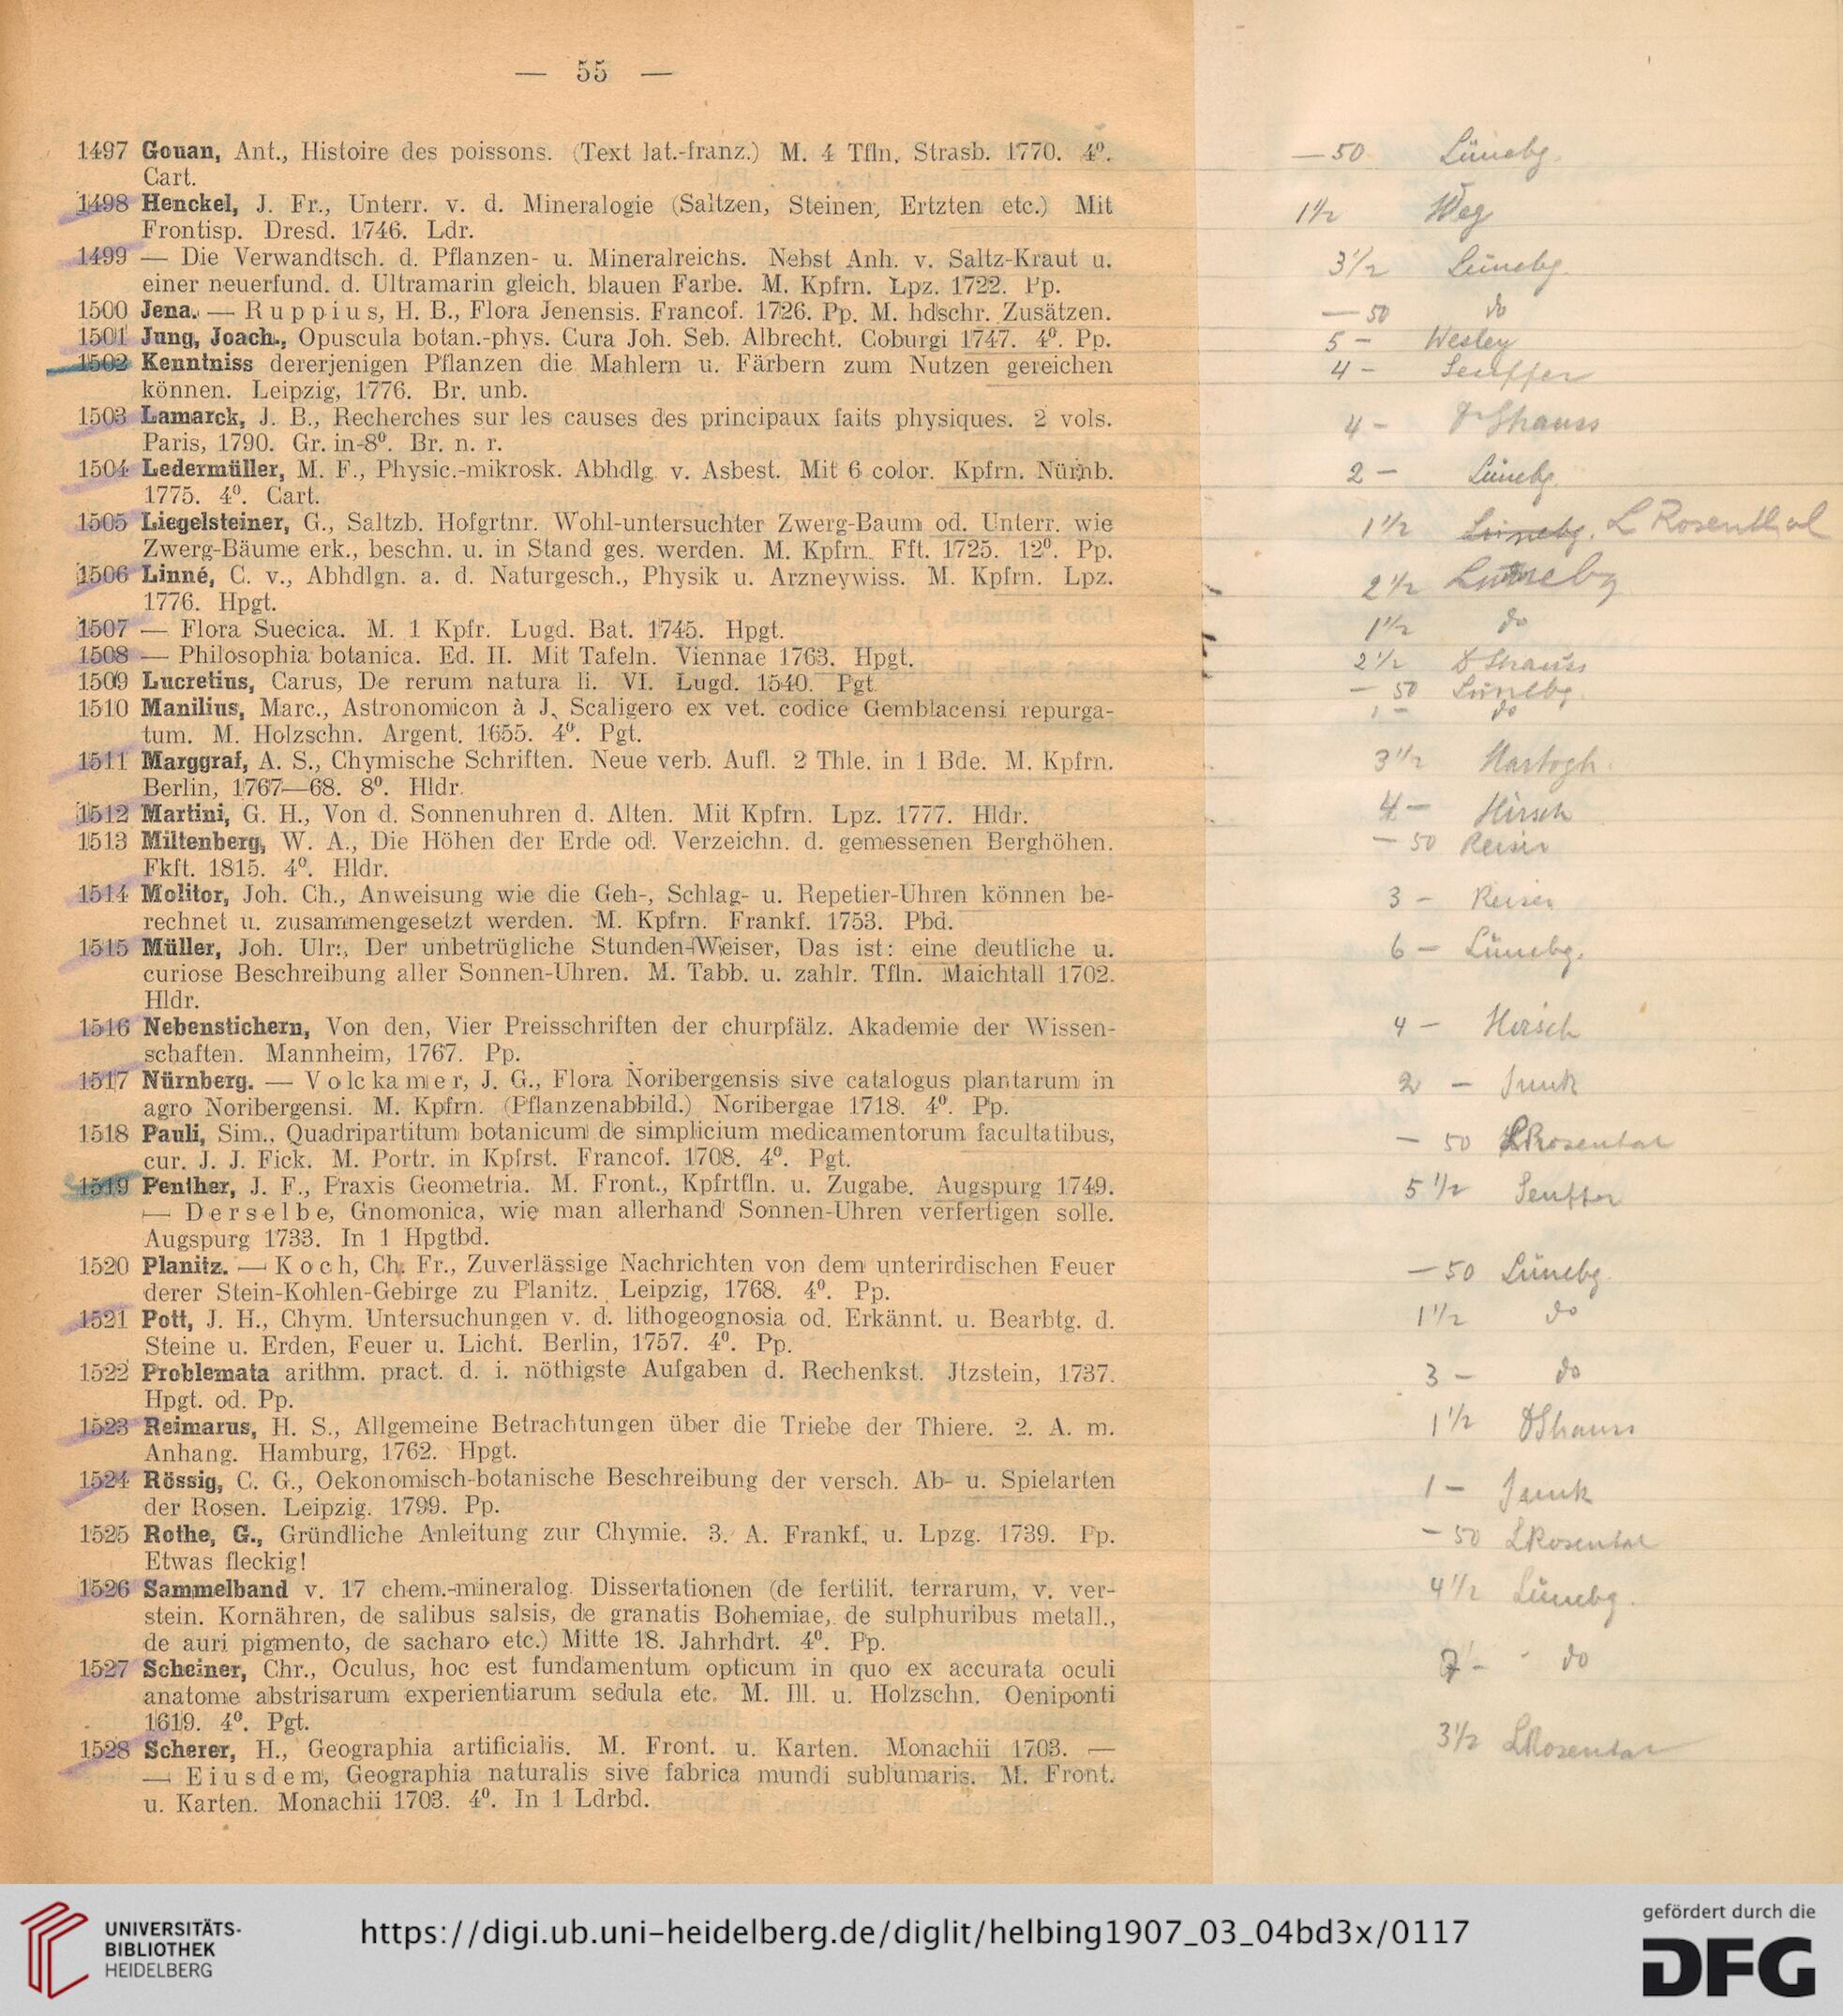 — 55 —
1497 Gouan, Ant., Histoire des poissons. (Text lat.-franz.) M. 4 Tfln. Strasb. 1770. 4⁰.
Cart.
1498 Henckel, J. Fr., Unterr. v. d. Mineralogie (Saltzen, Steinen, Ertzten etc.) Mit
Frontisp. Dresd. 1746. Ldr.
1499 — Die Verwandtsch. d. Pflanzen- u. Mineralreichs. Nebst Anh. v. Saltz-Kraut u.
einer neuerfund. d. Ultramarin gleich. blauen Farbe. M. Kpfrn. Lpz. 1722. Pp.
1500 Jena. — Ruppius, H. B., Flora Jenensis. Francof. 1726. Pp. M. hdschr. Zusätzen.
1501 Jung, Joach., Opuscula botan.-phys. Cura Joh. Seb. Albrecht. Coburgi 1747. 4⁰. Pp.
1502 Kenntniss dererjenigen Pflanzen die Mahlern u. Färbern zum Nutzen gereichen
können. Leipzig, 1776. Br. unb.
1503 Lamarck, J. B., Recherches sur les causes des principaux faits physiques. 2 vols.
Paris, 1790. Gr. in-8⁰. Br. n. r.
1504 Ledermüller, M. F., Physic.-mikrosk. Abhdlg. v. Asbest. Mit 6 color. Kpfrn. Nürnb.
1775. 4⁰. Cart.
1505 Liegelsteiner, G., Saltzb. Hofgrtnr. Wohl-untersuchter Zwerg-Baum od. Unterr. wie
Zwerg-Bäume erk., beschn. u. in Stand ges. werden. M. Kpfrn. Fft. 1725. 12⁰. Pp.
1506 Linné, C. v., Abhdlgn. a. d. Naturgesch., Physik u. Arzneywiss. M. Kpfrn. Lpz.
1776. Hpgt.
1507 — Flora Suecica. M. 1 Kpfr. Lugd. Bat. 1745. Hpgt.
1508 — Philosophia botanica. Ed. II. Mit Tafeln. Viennae 1763. Hpgt.
1509 Lucretius, Carus, De rerum natura li. VI. Lugd. 1540. Pgt
1510 Manilius, Marc., Astronomicon à J. Scaligero ex vet. codice Gemblacensi repurga-
tum. M. Holzschn. Argent. 1655. 4⁰. Pgt.
1511 Marggraf, A. S., Chymische Schriften. Neue verb. Aufl. 2 Thle. in 1 Bde. M. Kpfrn.
Berlin, 1767—68. 8⁰. Hldr.
1512 Martini, G. H., Von d. Sonnenuhren d. Alten. Mit Kpfrn. Lpz. 1777. Hldr.
1513 Miltenberg, W. A., Die Höhen der Erde od. Verzeichn. d. gemessenen Berghöhen.
Fkft. 1815. 4⁰. Hldr.
1514 Molitor, Joh. Ch., Anweisung wie die Geh-, Schlag- u. Repetier-Uhren können be-
rechnet u. zusammengesetzt werden. M. Kpfrn. Frankf. 1753. Pbd.
1515 Müller, Joh. Ulr., Der unbetrügliche Stunden-Weiser, Das ist: eine deutliche u.
curiose Beschreibung aller Sonnen-Uhren. M. Tabb. u. zahlr. Tfln. Maichtall 1702.
Hldr.
1516 Nebenstichern, Von den, Vier Preisschriften der churpfälz. Akademie der Wissen-
schaften. Mannheim, 1767. Pp.
1517 Nürnberg. — Volckamer, J. G., Flora Noribergensis sive catalogus plantarum in
agro Noribergensi. M. Kpfrn. (Pflanzenabbild.) Noribergae 1718. 4⁰. Pp.
1518 Pauli, Sim., Quadripartitum botanicum de simplicium medicamentorum facultatibus,
cur. J. J. Fick. M. Portr. in Kpfrst. Francof. 1708. 4⁰. Pgt.
1519 Penther, J. F., Praxis Geometria. M. Front., Kpfrtfln. u. Zugabe. Augspurg 1749.
— Derselbe, Gnomonica, wie man allerhand Sonnen-Uhren verfertigen solle.
Augspurg 1733. In 1 Hpgtbd.
1520 Planitz. — Koch, Ch. Fr., Zuverlässige Nachrichten von dem unterirdischen Feuer
derer Stein-Kohlen-Gebirge zu Planitz. Leipzig, 1768. 4⁰. Pp.
1521 Pott, J. H., Chym. Untersuchungen v. d. lithogeognosia od. Erkännt. u. Bearbtg. d.
Steine u. Erden, Feuer u. Licht. Berlin, 1757. 4⁰. Pp.
1522 Problemata arithm. pract. d. i. nöthigste Aufgaben d. Rechenkst. Jtzstein, 1737.
Hpgt. od. Pp.
1523 Reimarus, H. S., Allgemeine Betrachtungen über die Triebe der Thiere. 2. A. m.
Anhang. Hamburg, 1762. Hpgt.
1524 Rössig, C. G., Oekonomisch-botanische Beschreibung der versch. Ab- u. Spielarten
der Rosen. Leipzig. 1799. Pp.
1525 Rothe, G., Gründliche Anleitung zur Chymie. 3. A. Frankf. u. Lpzg. 1739. Pp.
Etwas fleckig!
1526 Sammelband v. 17 chem.-mineralog. Dissertationen (de fertilit. terrarum, v. ver-
stein. Kornähren, de salibus salsis, de granatis Bohemiae, de sulphuribus metall.,
de auri pigmento, de sacharo etc.) Mitte 18. Jahrhdrt. 4⁰. Pp.
1527 Scheiner, Chr., Oculus, hoc est fundamentum opticum in quo ex accurata oculi
anatome abstrisarum experientiarum sedula etc. M. Ill. u. Holzschn. Oeniponti
1619. 4⁰. Pgt.
1528 Scherer, H., Geographia artificialis. M. Front. u. Karten. Monachii 1703. —
— Eiusdem, Geographia naturalis sive fabrica mundi sublumaris. M. Front.
u. Karten. Monachii 1703. 4⁰. In 1 Ldrbd.
— 50 Lünebg.
1 1/2 Weg
3 1/2 Lünebg.
— 50 do
5 — Wesley
4 — Seuffer
4 —
2 — Lünebg.
1 1/2 Lünebg. L Rosenthal
2 1/2 Lünebg
1 1/2 do
2 1/2
— 50 Lünebg.
1 — do
3 1/2 Hartogh.
4 — Hirsch
— 50 Reiser
3 — Reiser
6 — Lünebg.
4 — Hirsch
2 — Junk
— 50 LRosental
5 1/2 Seuffer
— 50 Lünebg.
1 1/2 do
3 — do
1 1/2
1 — Junk
— 50 LRosental
4 1/2 Lünebg.
7 — do
3 1/2 LRosental
UNIVERSITÄTS-
BIBLIOTHEK
HEIDELBERG
https://digi.ub.uni-heidelberg.de/diglit/helbing1907_03_04bd3x/0117
gefördert durch die
DFG